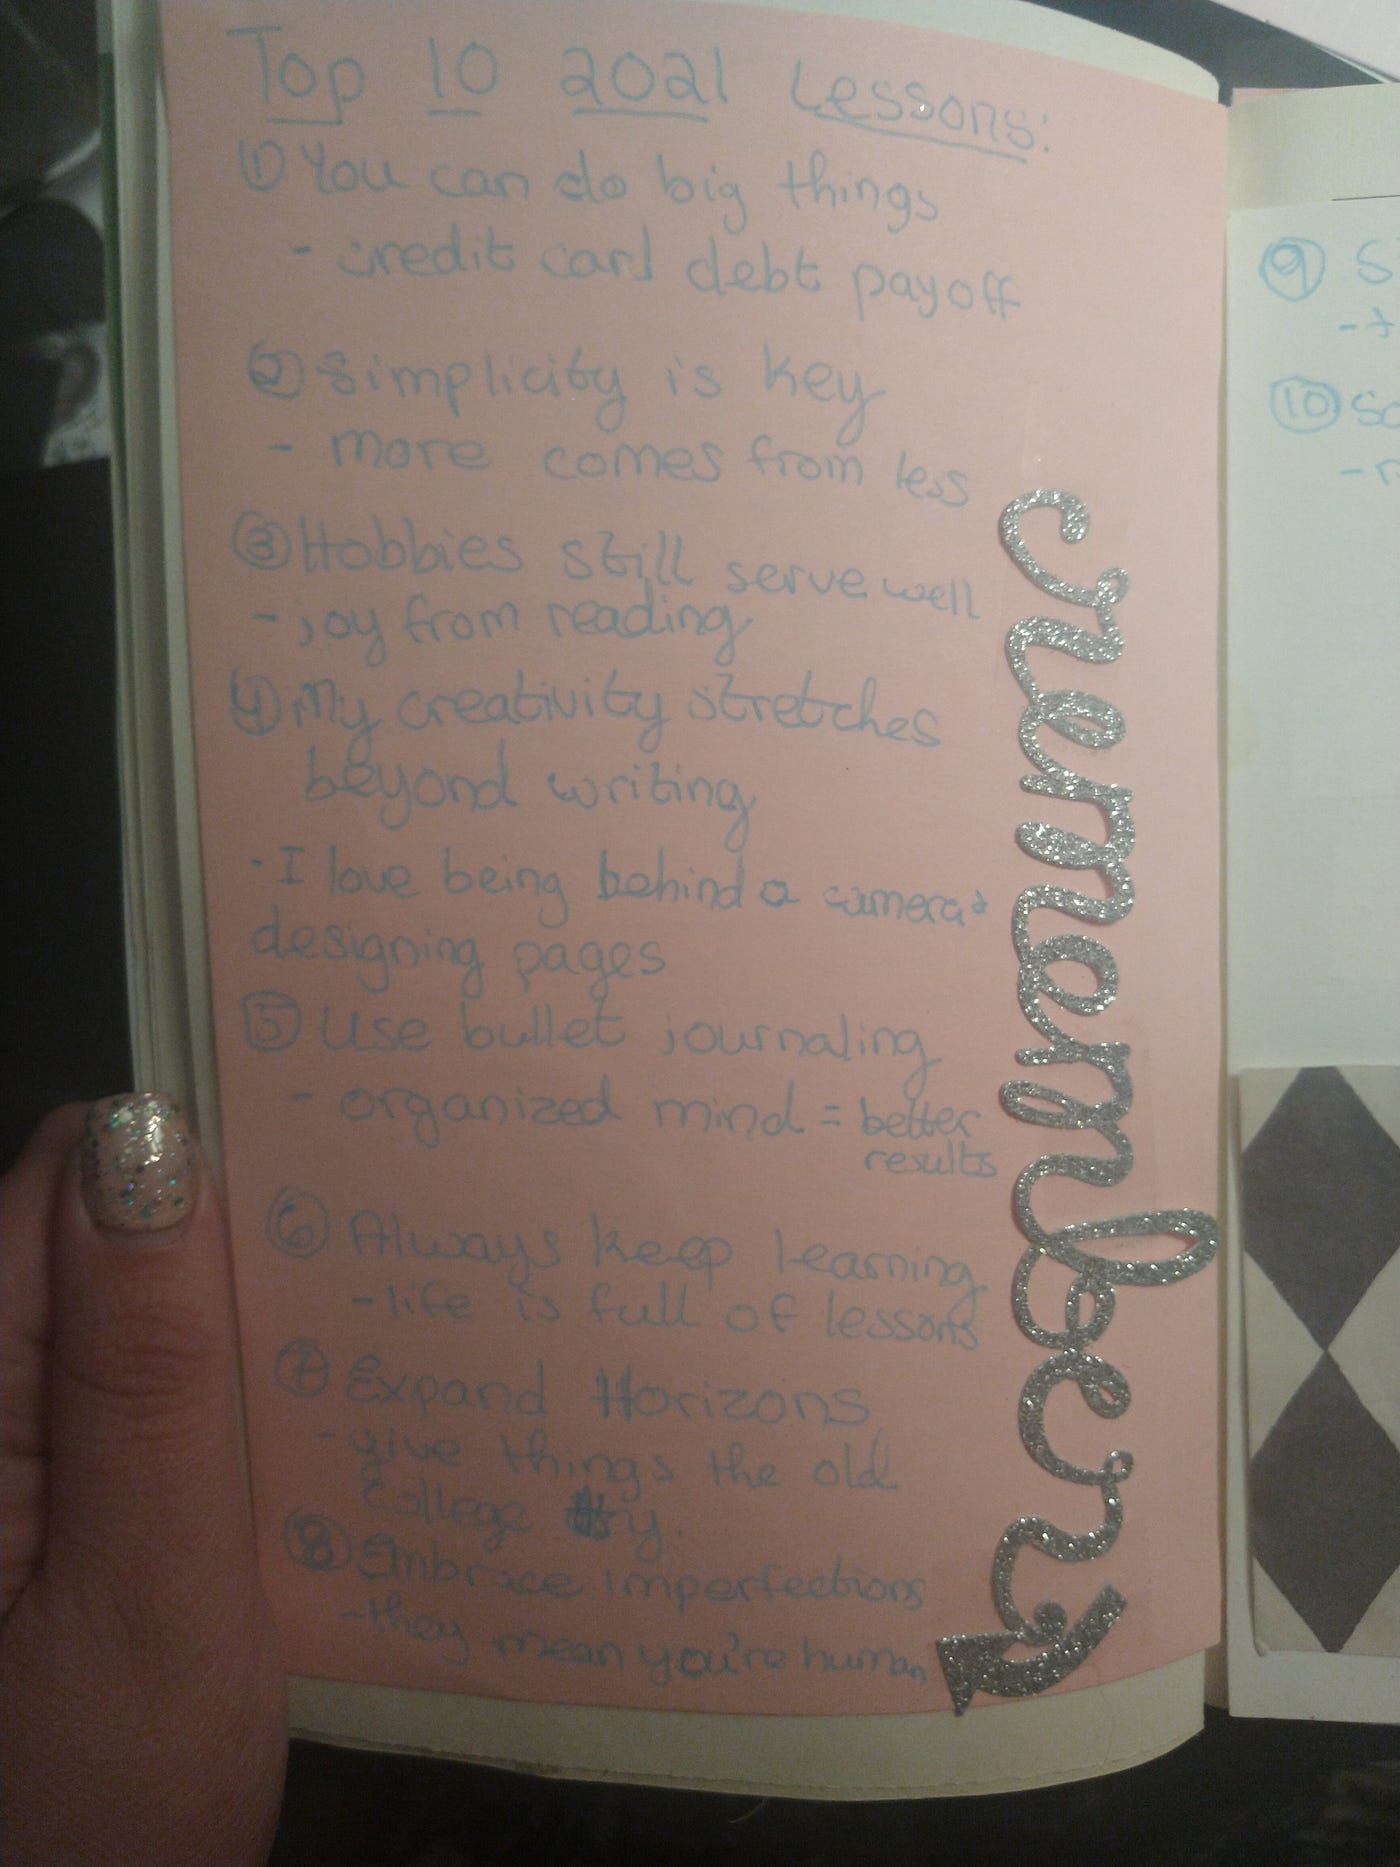 Top 10 2021 Lessons:
① You can do big things
- credit card debt payoff
② Simplicity is key
- more comes from less
③ Hobbies still serve well
- joy from reading
④ My creativity stretches
beyond writing
· I love being behind a camera &
designing pages
⑤ Use bullet journaling
- organized mind = better
results
⑥ Always keep learning
- life is full of lessons
⑦ Expand Horizons
- give things the old
College try.
⑧ Embrace imperfections
- they mean you're human
remember
⑨
⑩